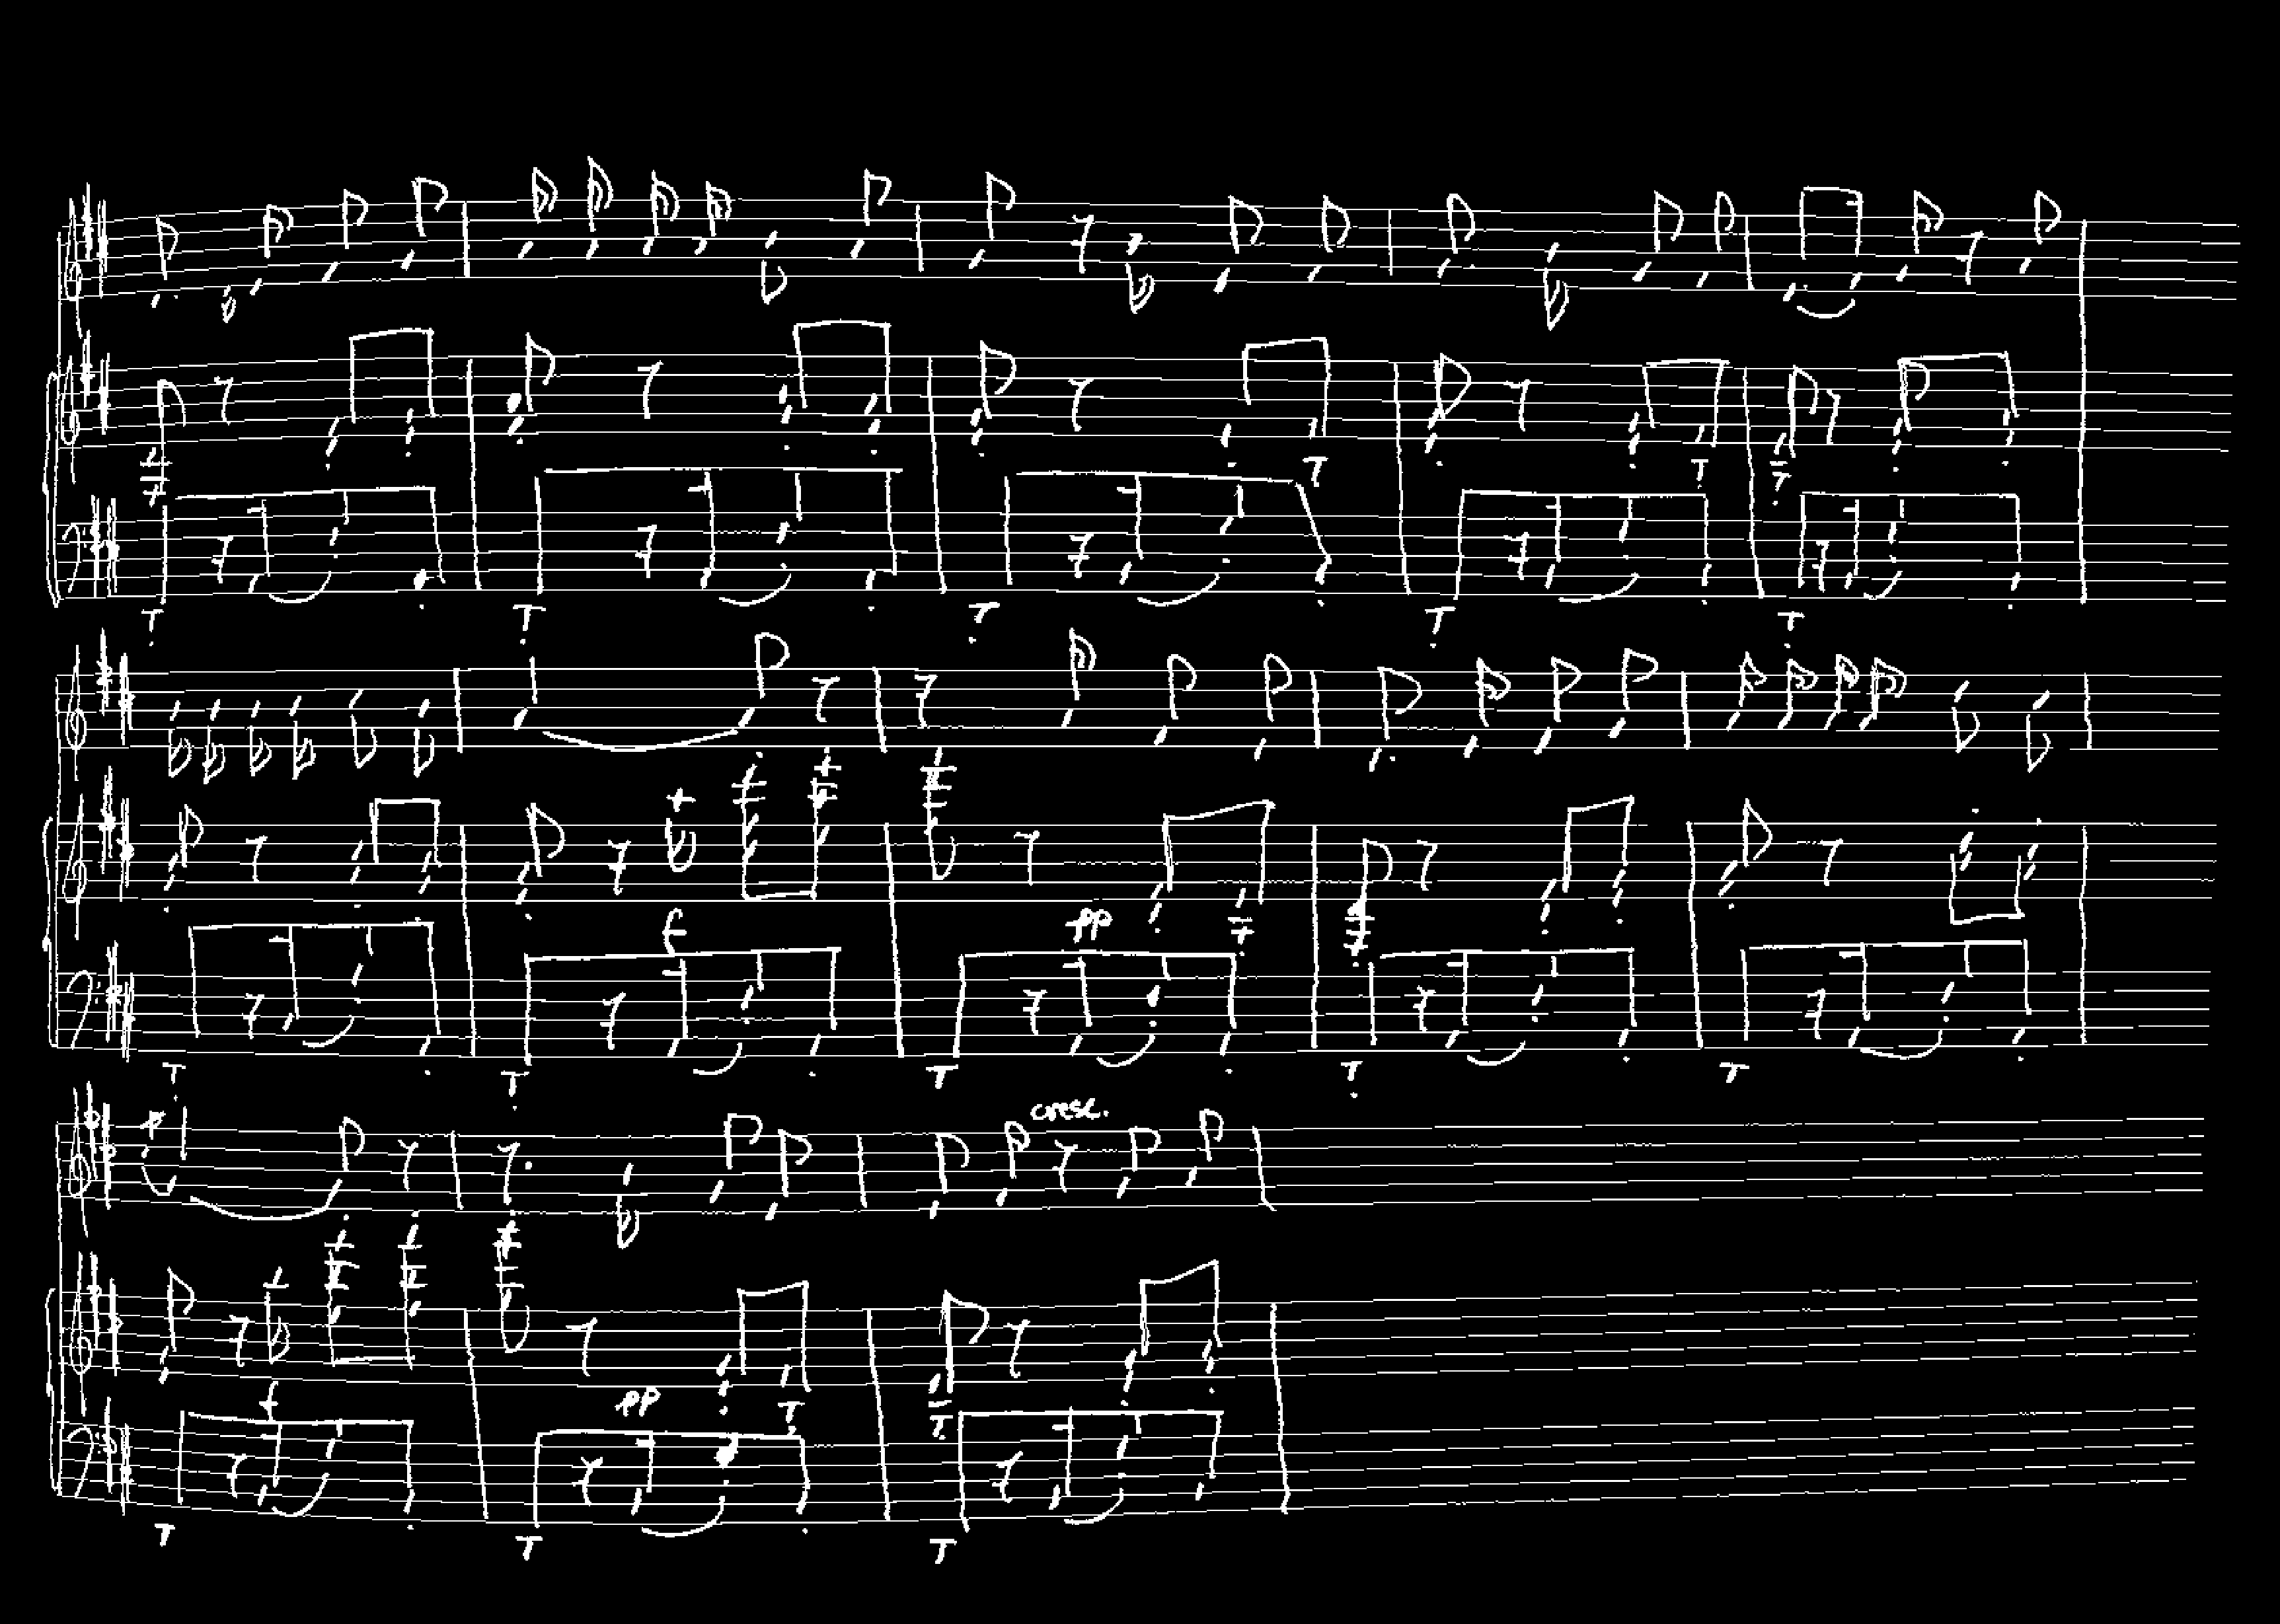 f
pp
cresc.
f
pp